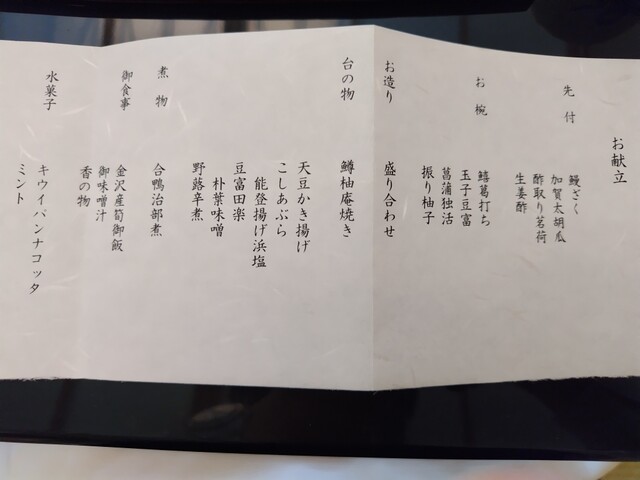 お献立
先付
鰻ざく
加賀太胡瓜
酢取り茗荷
生姜酢
お椀
鱚葛打ち
玉子豆富
菖蒲独活
振り柚子
お造り
盛り合わせ
台の物
鱒柚庵焼き
天豆かき揚げ
こしあぶら
能登揚げ浜塩
豆富田楽
朴葉味噌
野蕗辛煮
煮物
合鴨治部煮
御食事
金沢産筍御飯
御味噌汁
香の物
水菓子
キウイパンナコッタ
ミント